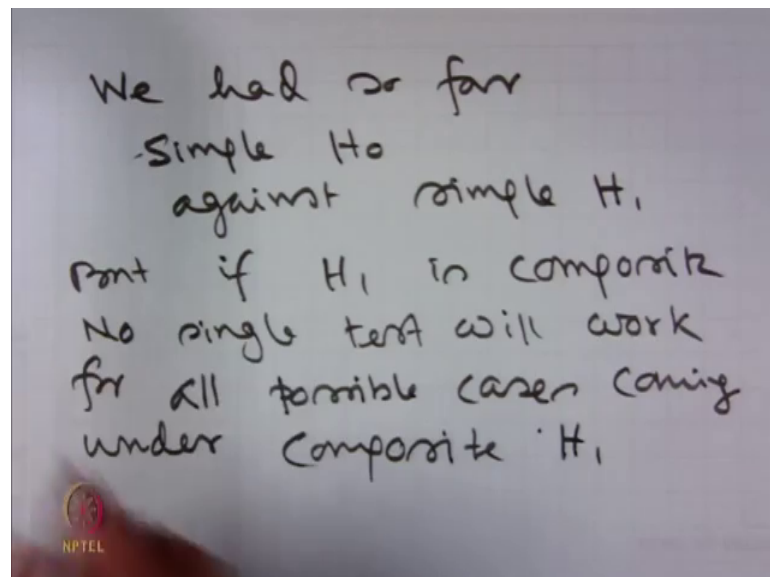 We had so far
Simple H0
against simple H1
But if H1 is composite
No single test will work
for all possible cases coming
under composite H1
NPTEL